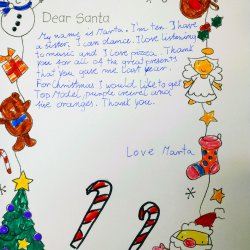 Dear Santa
My name is Marta. I'm ten. I have
a sister. I can dance. I love listening
to music and I love pizza. Thank
you for all of the great presents
that you gave me last year.
For Christmas I would like to get
Top Model, purple and
six oranges. Thank you.
Love Marta